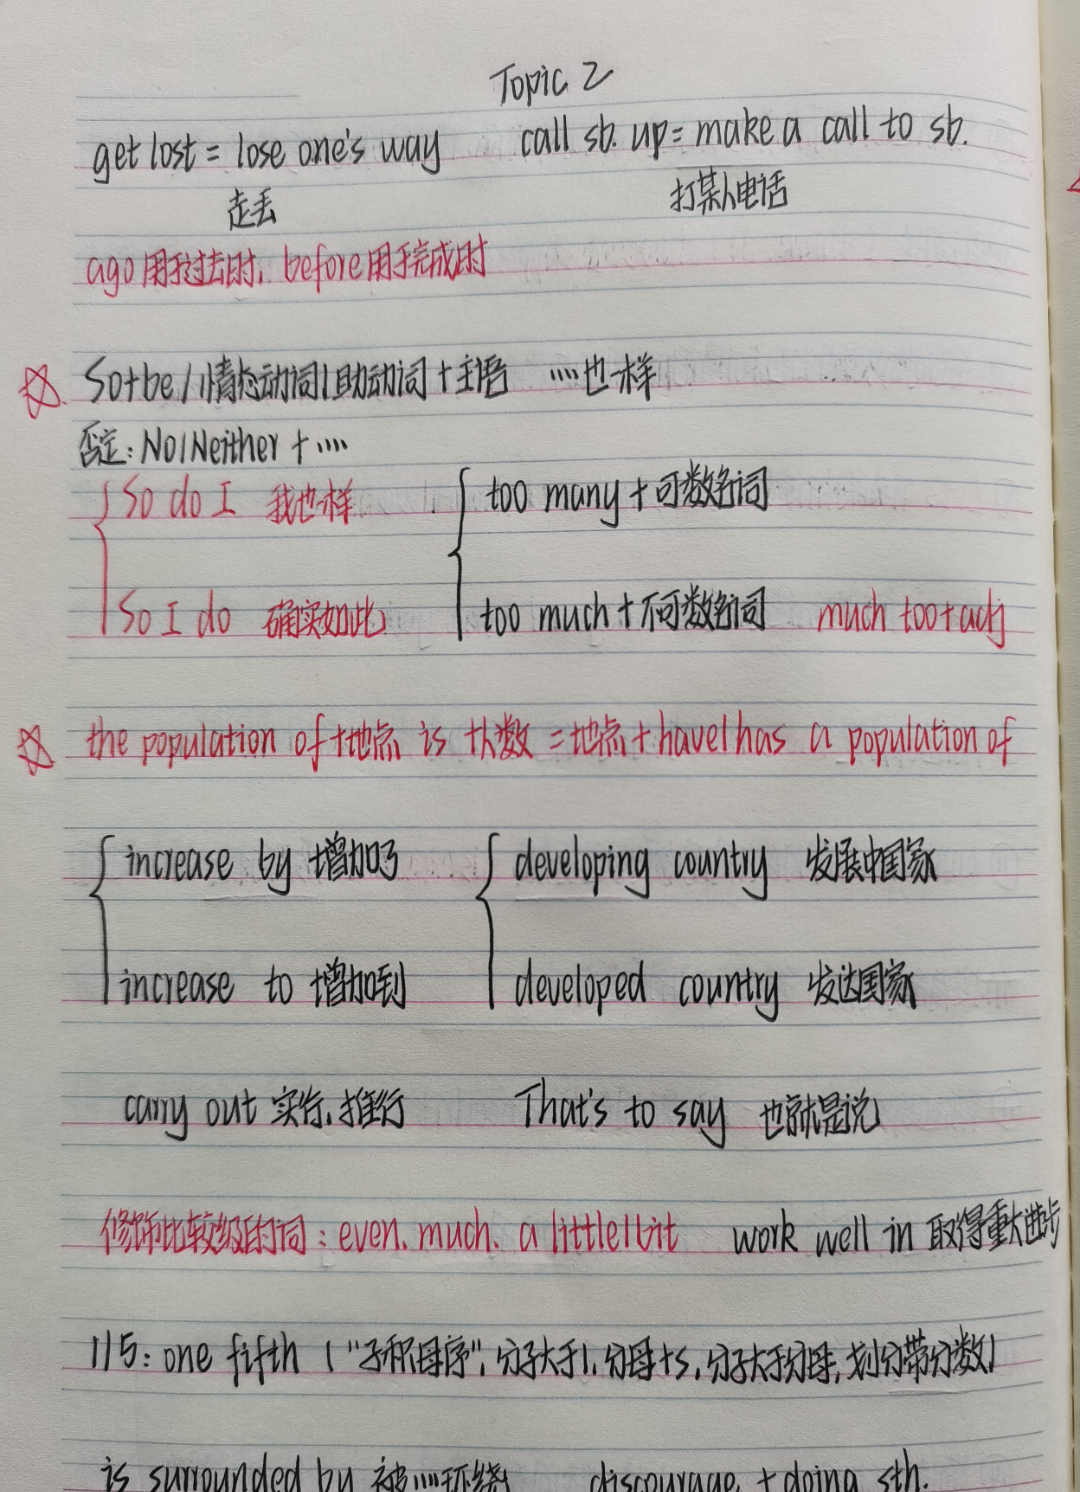 Topic 2
get lost = lose one's way call sb. up = make a call to sb.
走丢 打某人电话
ago用于过去时, before用于完成时
So+be/情态动词/助动词+主语 ····也一样
否定: No/Neither + ····
So do I 我也一样 too many + 可数名词
So I do 确实如此 too much + 不可数名词 much too+adj
the population of+地点 is +人数 = 地点+have/has a population of
increase by 增加了 developing country 发展中国家
increase to 增加到 developed country 发达国家
carry out 实行,推行 That's to say 也就是说
修饰比较级的词: even. much. a little/bit work well in 取得重大进步
1/5: one fifth ("子积母序", 分子大于1, 分母+s, 分子大于分母, 划分带分数)
is surrounded by 被····环绕 discourage + doing sth.